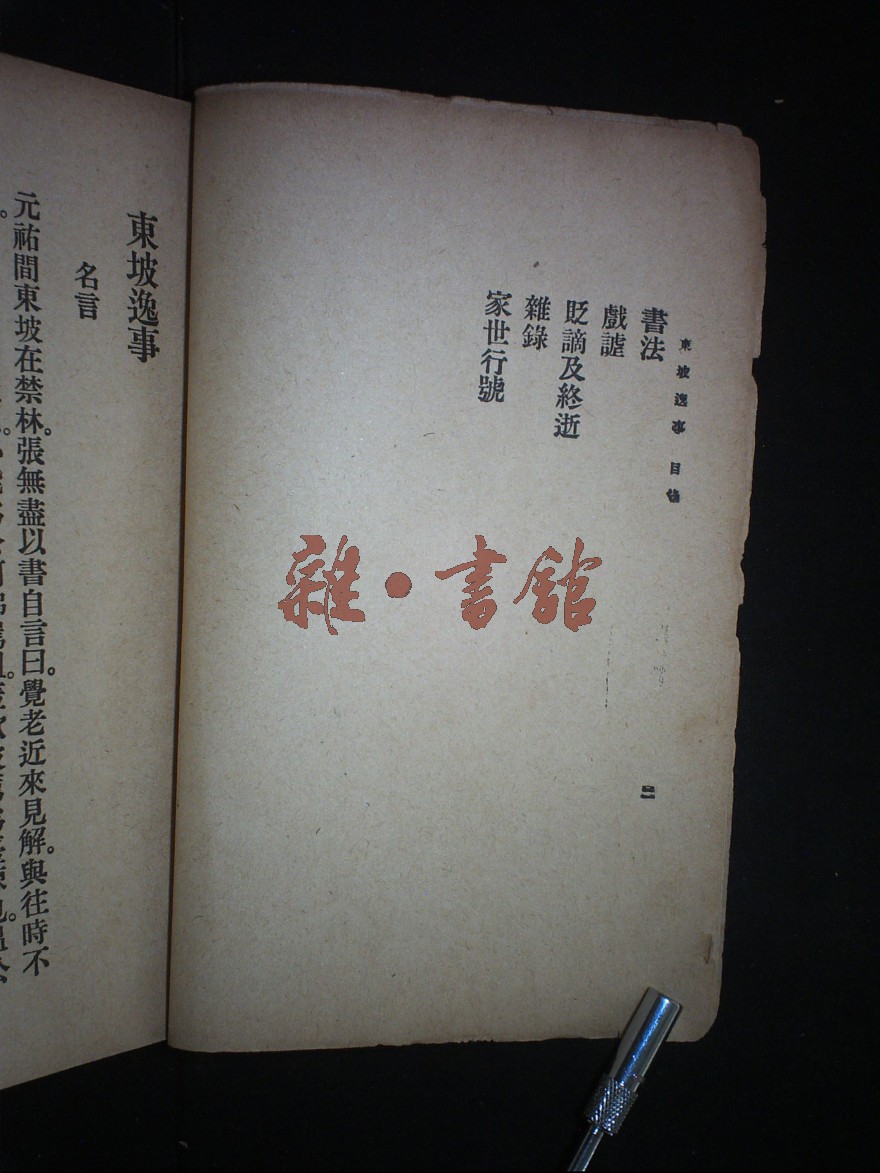 東坡逸事 目錄
書法
戲謔
貶謫及終逝
雜錄
家世行號
二
雜·書館
東坡逸事
名言
元祐間東坡在禁林。張無盡以書自言曰。覺老近來見解。與往時不